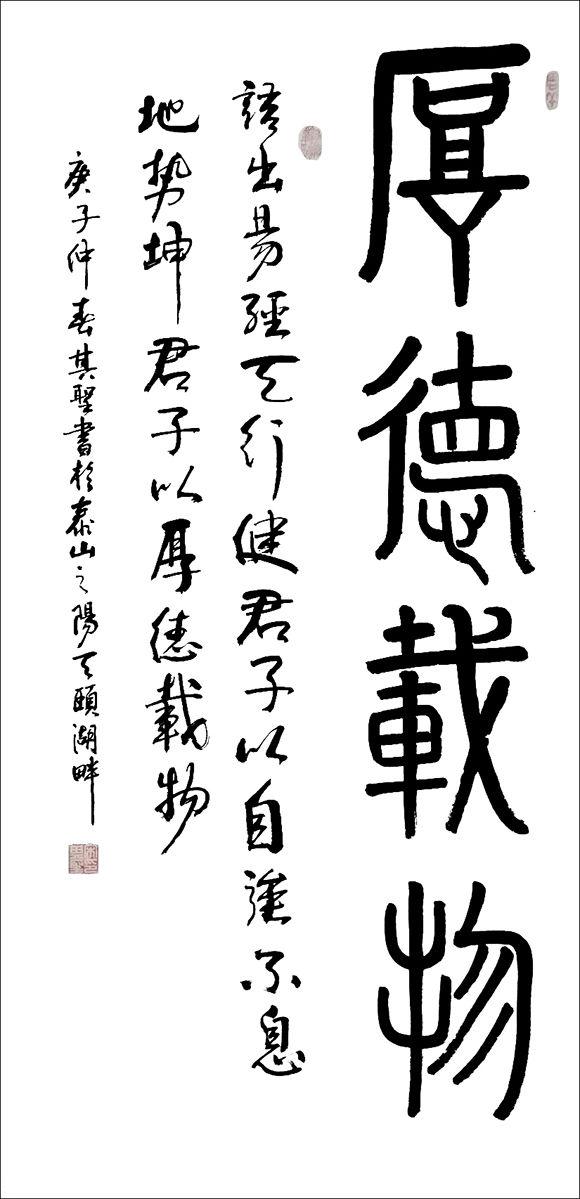 厚德載物
語出易經天行健君子以自強不息
地勢坤君子以厚德載物
庚子仲春其聖書於泰山之陽天頤湖畔